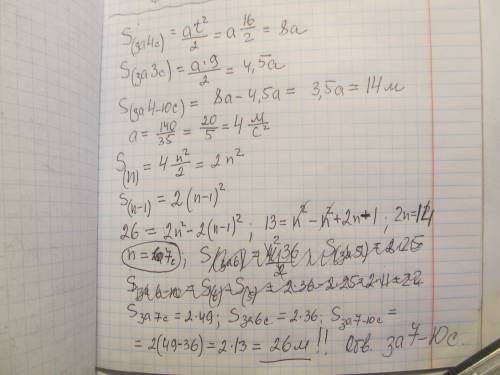 S(за 4с) = at²/2 = a 16/2 = 8a
S(за 3с) = a·9/2 = 4,5a
S(за 4-юс) = 8a - 4,5a = 3,5a = 14м
a = 140/35 = 20/5 = 4 м/с²
S(n) = 4 n²/2 = 2n²
S(n-1) = 2(n-1)²
26 = 2n² - 2(n-1)² ; 13 = n² - n² + 2n - 1 ; 2n = 14
n = 7с ;
S за 7с = 2·49; S за 6с = 2·36; S за 7-юс =
= 2(49-36) = 2·13 = 26м!! Отв. за 7-юс.